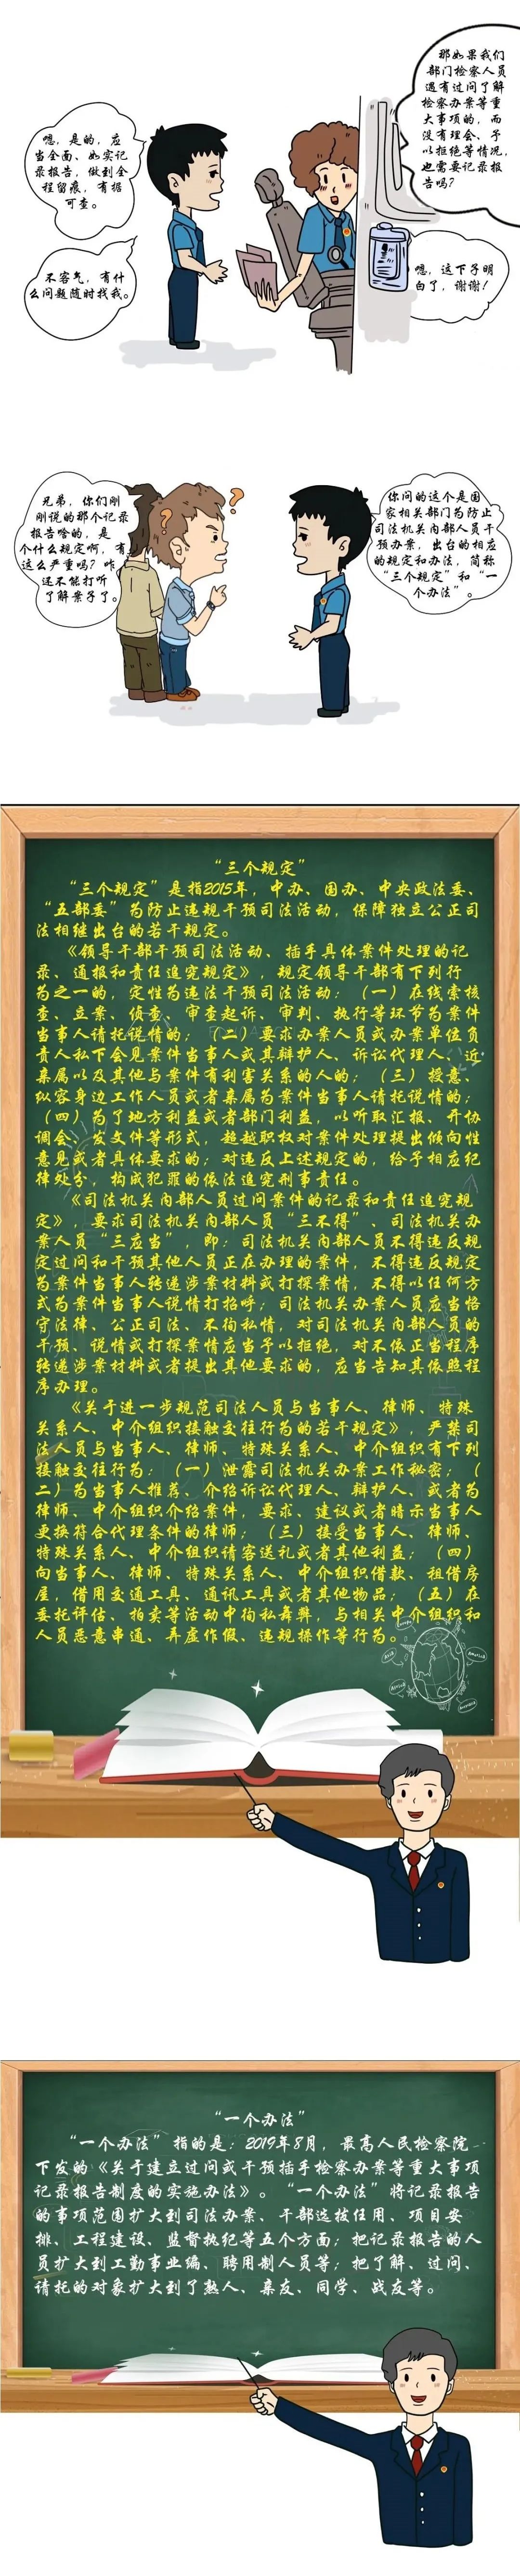 那如果我们
部门检察人员
遇有过问了解
检察办案等重
大事项的，而
没有理会、予
以拒绝等情况，
也需要记录报
告吗？
嗯，是的，应
当全面、如实记
录报告，做到全
程留痕，有据
可查。
嗯，这下子明
白了，谢谢！
不客气，有什
么问题随时找我。
兄弟，你们刚
刚说的那个记录
报告啥的，是
个什么规定啊，有
这么严重吗？咋
还不能打听
了解案子了。
你问的这个是国
家相关部门为防止
司法机关内部人员干
预办案，出台的相应
的规定和办法，简称
“三个规定”和“一
个办法”。
“三个规定”
“三个规定”是指2015年，中办、国办、中央政法委、
“五部委”为防止违规干预司法活动，保障独立公正司
法相继出台的若干规定。
《领导干部干预司法活动、插手具体案件处理的记
录、通报和责任追究规定》，规定领导干部有下列行
为之一的，定性为违法干预司法活动：（一）在线索核
查、立案、侦查、审查起诉、审判、执行等环节为案件
当事人请托说情的；（二）要求办案人员或办案单位负
责人私下会见案件当事人或其辩护人、诉讼代理人、近
亲属以及其他与案件有利害关系的人的；（三）授意、
纵容身边工作人员或者亲属为案件当事人请托说情的；
（四）为了地方利益或者部门利益，以听取汇报、开协
调会、发文件等形式，超越职权对案件处理提出倾向性
意见或者具体要求的；对违反上述规定的，给予相应纪
律处分，构成犯罪的依法追究刑事责任。
《司法机关内部人员过问案件的记录和责任追究规
定》，要求司法机关内部人员“三不得”、司法机关办
案人员“三应当”，即：司法机关内部人员不得违反规
定过问和干预其他人员正在办理的案件，不得违反规定
为案件当事人转递涉案材料或打探案情，不得以任何方
式为案件当事人说情打招呼；司法机关办案人员应当恪
守法律、公正司法、不徇私情，对司法机关内部人员的
干预、说情或打探案情应当予以拒绝，对不依正当程序
转递涉案材料或者提出其他要求的，应当告知其依照程
序办理。
《关于进一步规范司法人员与当事人、律师、特殊
关系人、中介组织接触交往行为的若干规定》，严禁司
法人员与当事人、律师、特殊关系人、中介组织有下列
接触交往行为：（一）泄露司法机关办案工作秘密；（
二）为当事人推荐、介绍诉讼代理人、辩护人，或者为
律师、中介组织介绍案件，要求、建议或者暗示当事人
更换符合代理条件的律师；（三）接受当事人、律师、
特殊关系人、中介组织请客送礼或者其他利益；（四）
向当事人、律师、特殊关系人、中介组织借款、租借房
屋，借用交通工具、通讯工具或者其他物品；（五）在
委托评估、拍卖等活动中徇私舞弊，与相关中介组织和
人员恶意串通、弄虚作假、违规操作等行为。
“一个办法”
“一个办法”指的是：2019年8月，最高人民检察院
下发的《关于建立过问或干预插手检察办案等重大事项
记录报告制度的实施办法》。“一个办法”将记录报告
的事项范围扩大到司法办案、干部选拔任用、项目安
排、工程建设、监督执纪等五个方面；把记录报告的人
员扩大到工勤事业编、聘用制人员等；把了解、过问、
请托的对象扩大到了熟人、亲友、同学、战友等。